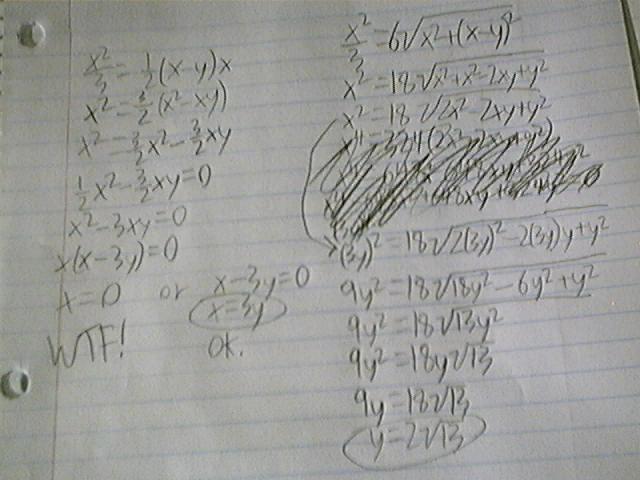 x²/3 = 1/2(x-y)x
x² = 3/2(x²-xy)
x² = 3/2x² - 3/2xy
1/2x² - 3/2xy = 0
x² - 3xy = 0
x(x-3y) = 0
x = 0 or x-3y = 0
x = 3y
WTF! OK.
x²/3 = 6√x²+(x-y)²
x² = 18√x²+x²-2xy+y²
x² = 18√2x²-2xy+y²
(3y)² = 18√2(3y)²-2(3y)y+y²
9y² = 18√18y²-6y²+y²
9y² = 18√13y²
9y² = 18y√13
9y = 18√13
y = 2√13